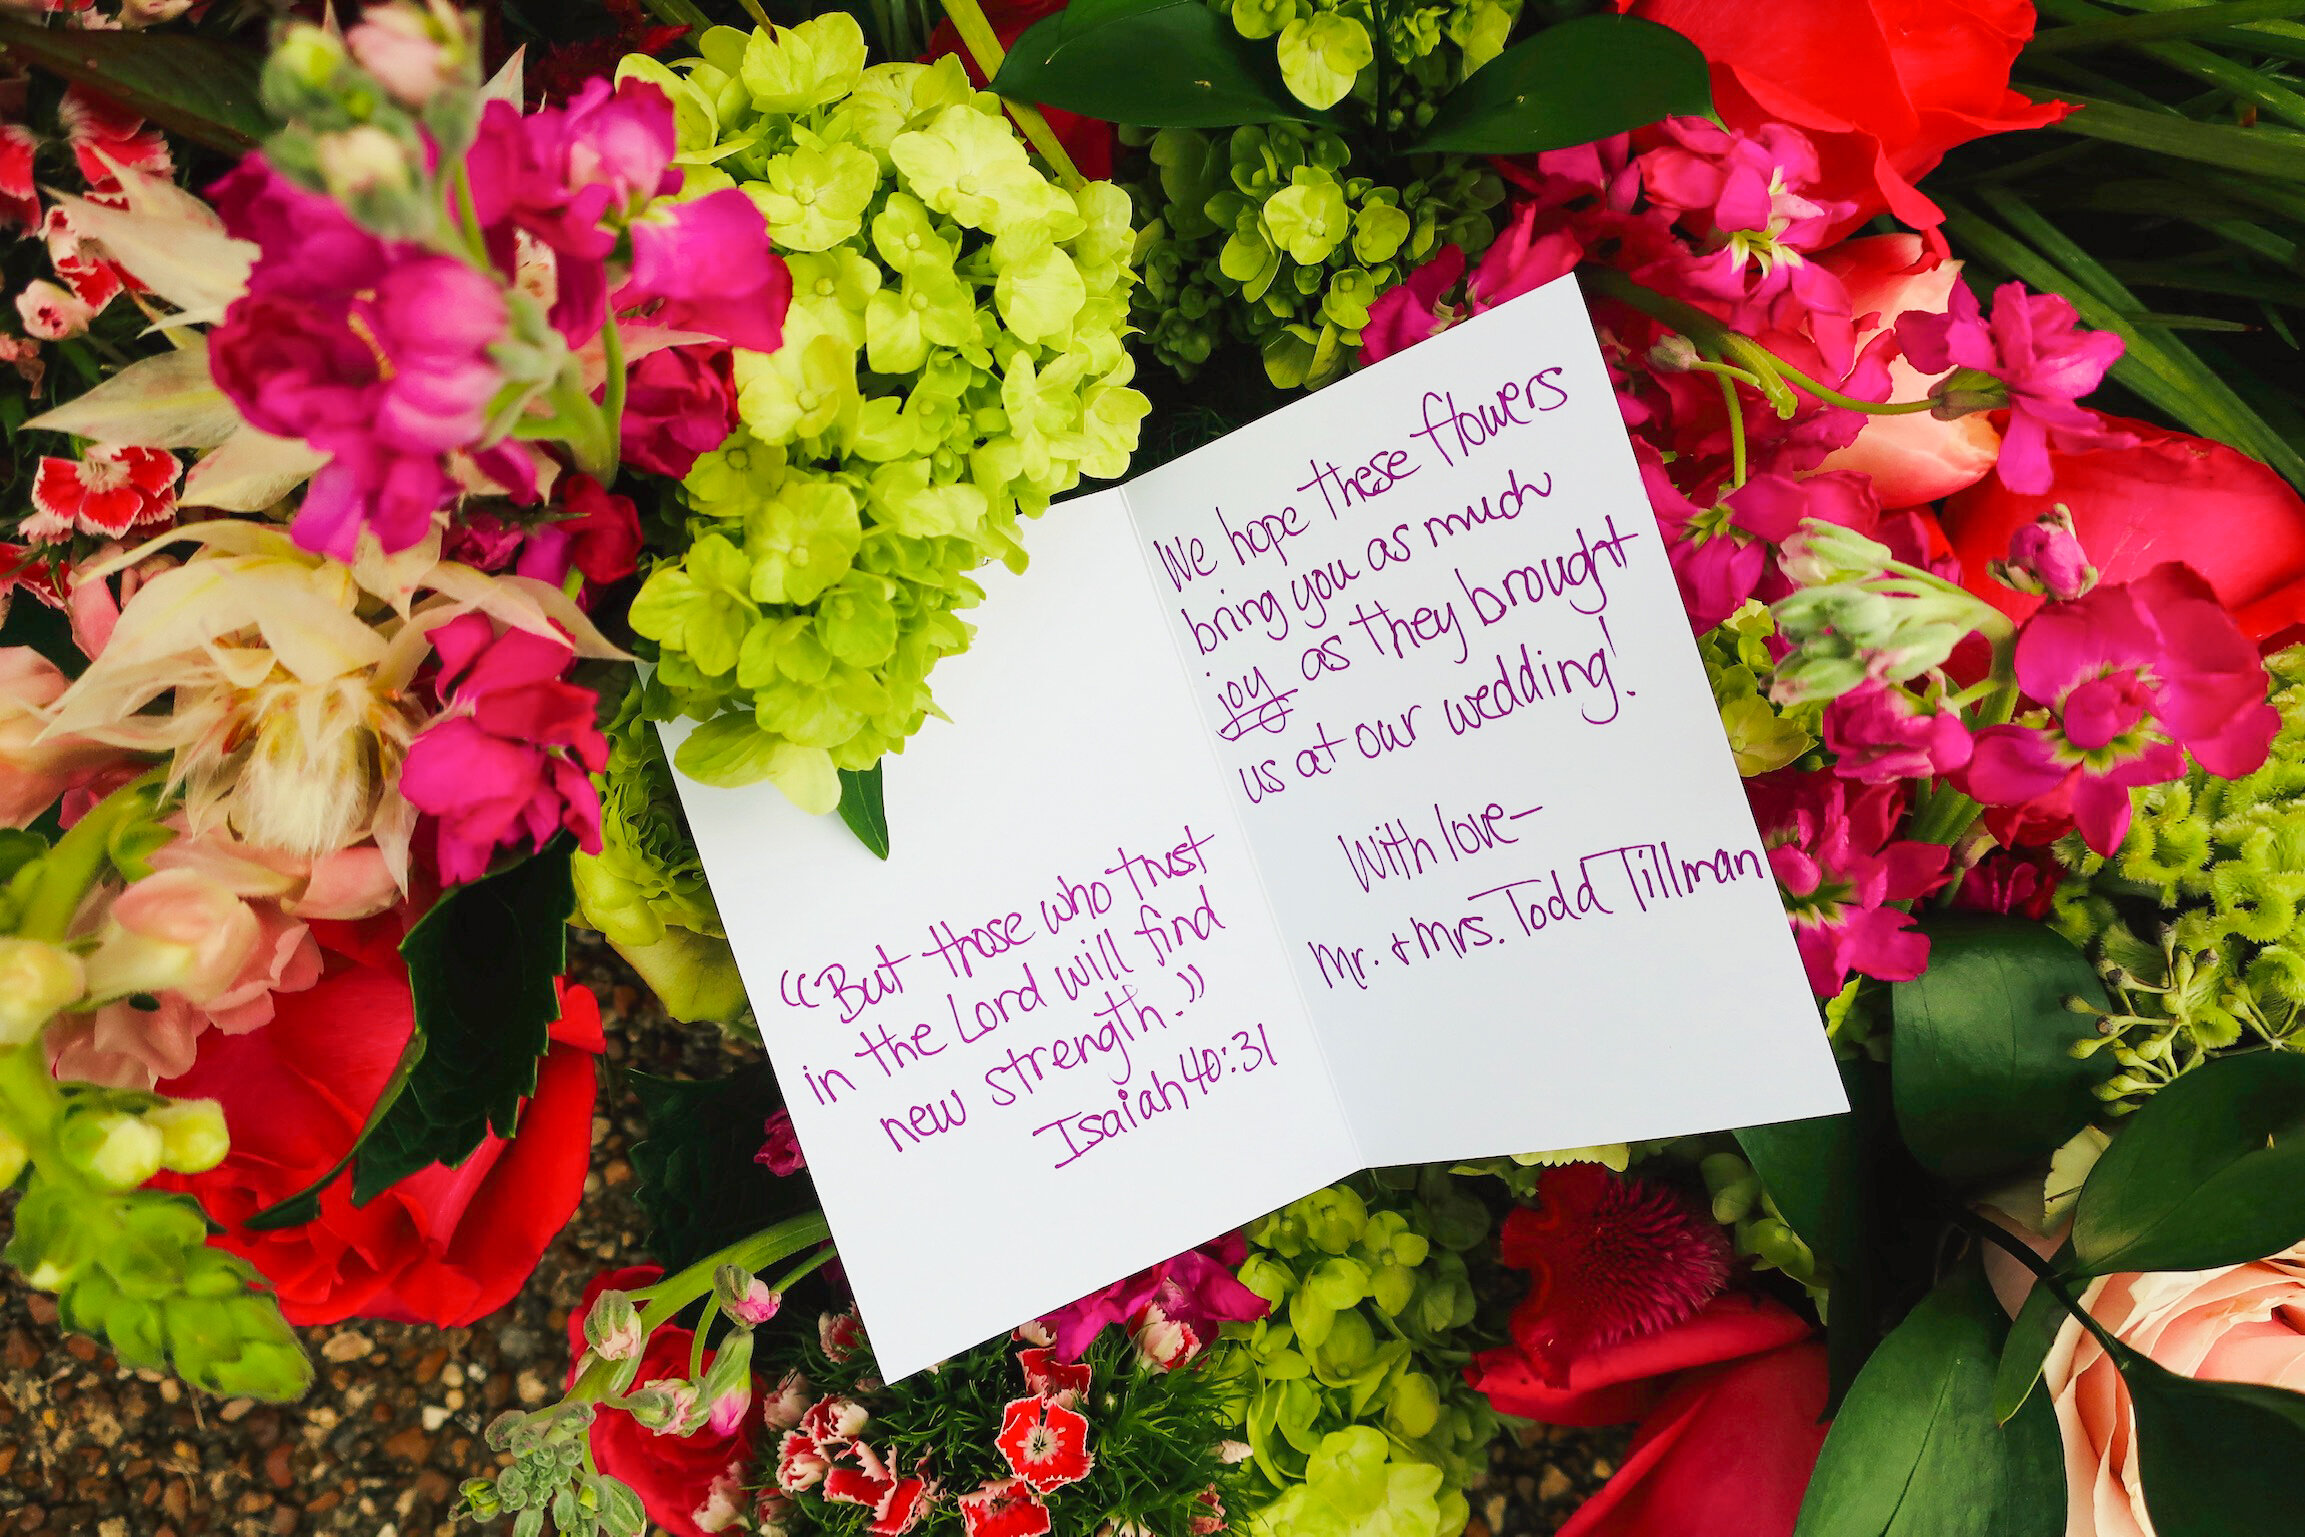 “But those who trust
in the Lord will find
new strength.”
Isaiah 40:31
We hope these flowers
bring you as much
joy as they brought
us at our wedding!
With love-
Mr. + Mrs. Todd Tillman